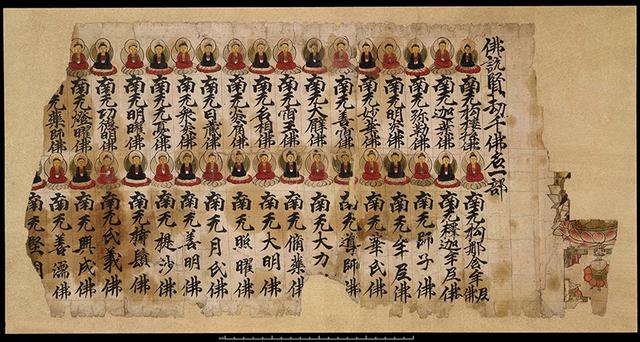 佛説賢劫千佛名一部
南无拘樓孫佛
南无迦葉佛
南无弥勒佛
南无明炎佛
南无妙華佛
南无善宿佛
南无大臂佛
南无宿王佛
南无名相佛
南无炎肩佛
南无日藏佛
南无衆炎佛
南无无憂佛
南无明曜佛
南无功德明佛
南无燈曜佛
无藥師佛
南无拘那含牟尼佛
南无釋迦牟尼佛
南无師子佛
南无牟尼佛
南无華氏佛
南无導師佛
南无大力
南无脩藥佛
南无大明佛
南无照曜佛
南无月氏佛
南无善明佛
南无提沙佛
南无持鬘佛
南无氏義佛
南无興成佛
南无善濡佛
南无堅